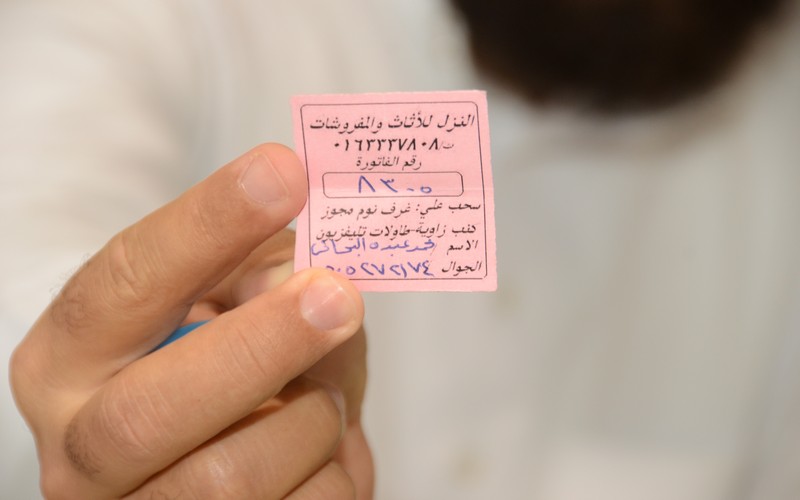 النزل للأثاث والمفروشات
ت/٠١٦٣٣٣٧٨٠٨
رقم الفاتورة
٨٣٠٥
سحب علي: غرف نوم مجوز
كنب زاوية طاولات تليفزيون
الاسم محمد عبده
الجوال